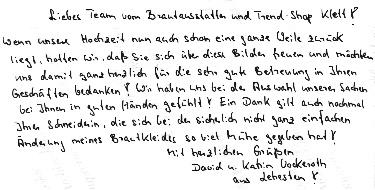 Liebes Team vom Brautausstatter und Trend-Shop Klett!
Wenn unsere Hochzeit nun auch schon eine ganze Weile zurück
liegt, hoffen wir, daß Sie sich über diese Bilder freuen und möchten
uns damit ganz herzlich für die sehr gute Betreuung in Ihren
Geschäften bedanken! Wir haben uns bei der Auswahl unserer Sachen
bei Ihnen in guten Händen gefühlt! Ein Dank gilt auch nochmal
Ihrer Schneiderin, die sich bei der sicherlich nicht ganz einfachen
Änderung meines Brautkleides so viel Mühe gegeben hat!
Mit herzlichen Grüßen
David u. Katrin
aus